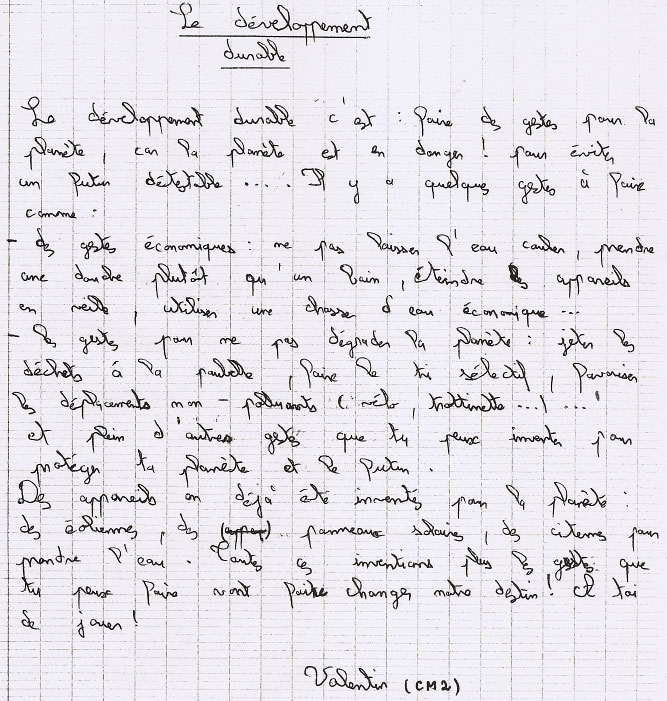 Le développement
durable
Le développement durable c'est : faire des gestes pour la
planète, car la planète est en danger ! pour éviter
un futur détestable .... Il y a quelques gestes à faire
comme :
- des gestes économiques : ne pas laisser l'eau couler, prendre
une douche plutôt qu'un bain, éteindre les appareils
en veille, utiliser une chasse d'eau économique ...
- les gestes pour ne pas dégrader la planète : jeter les
déchets à la poubelle, faire le tri sélectif, favoriser
les déplacements non-polluants (vélo, trottinette ...) ...
et plein d'autres gestes que tu peux inventer pour
protéger ta planète et le futur.
Des appareils on déjà été inventés pour la planète :
des éoliennes, des panneaux solaires, des citernes pour
prendre l'eau. Toutes ces inventions plus les gestes que
tu peux faire vont faire changer notre destin ! A toi
de jouer !
Valentin (CM2)